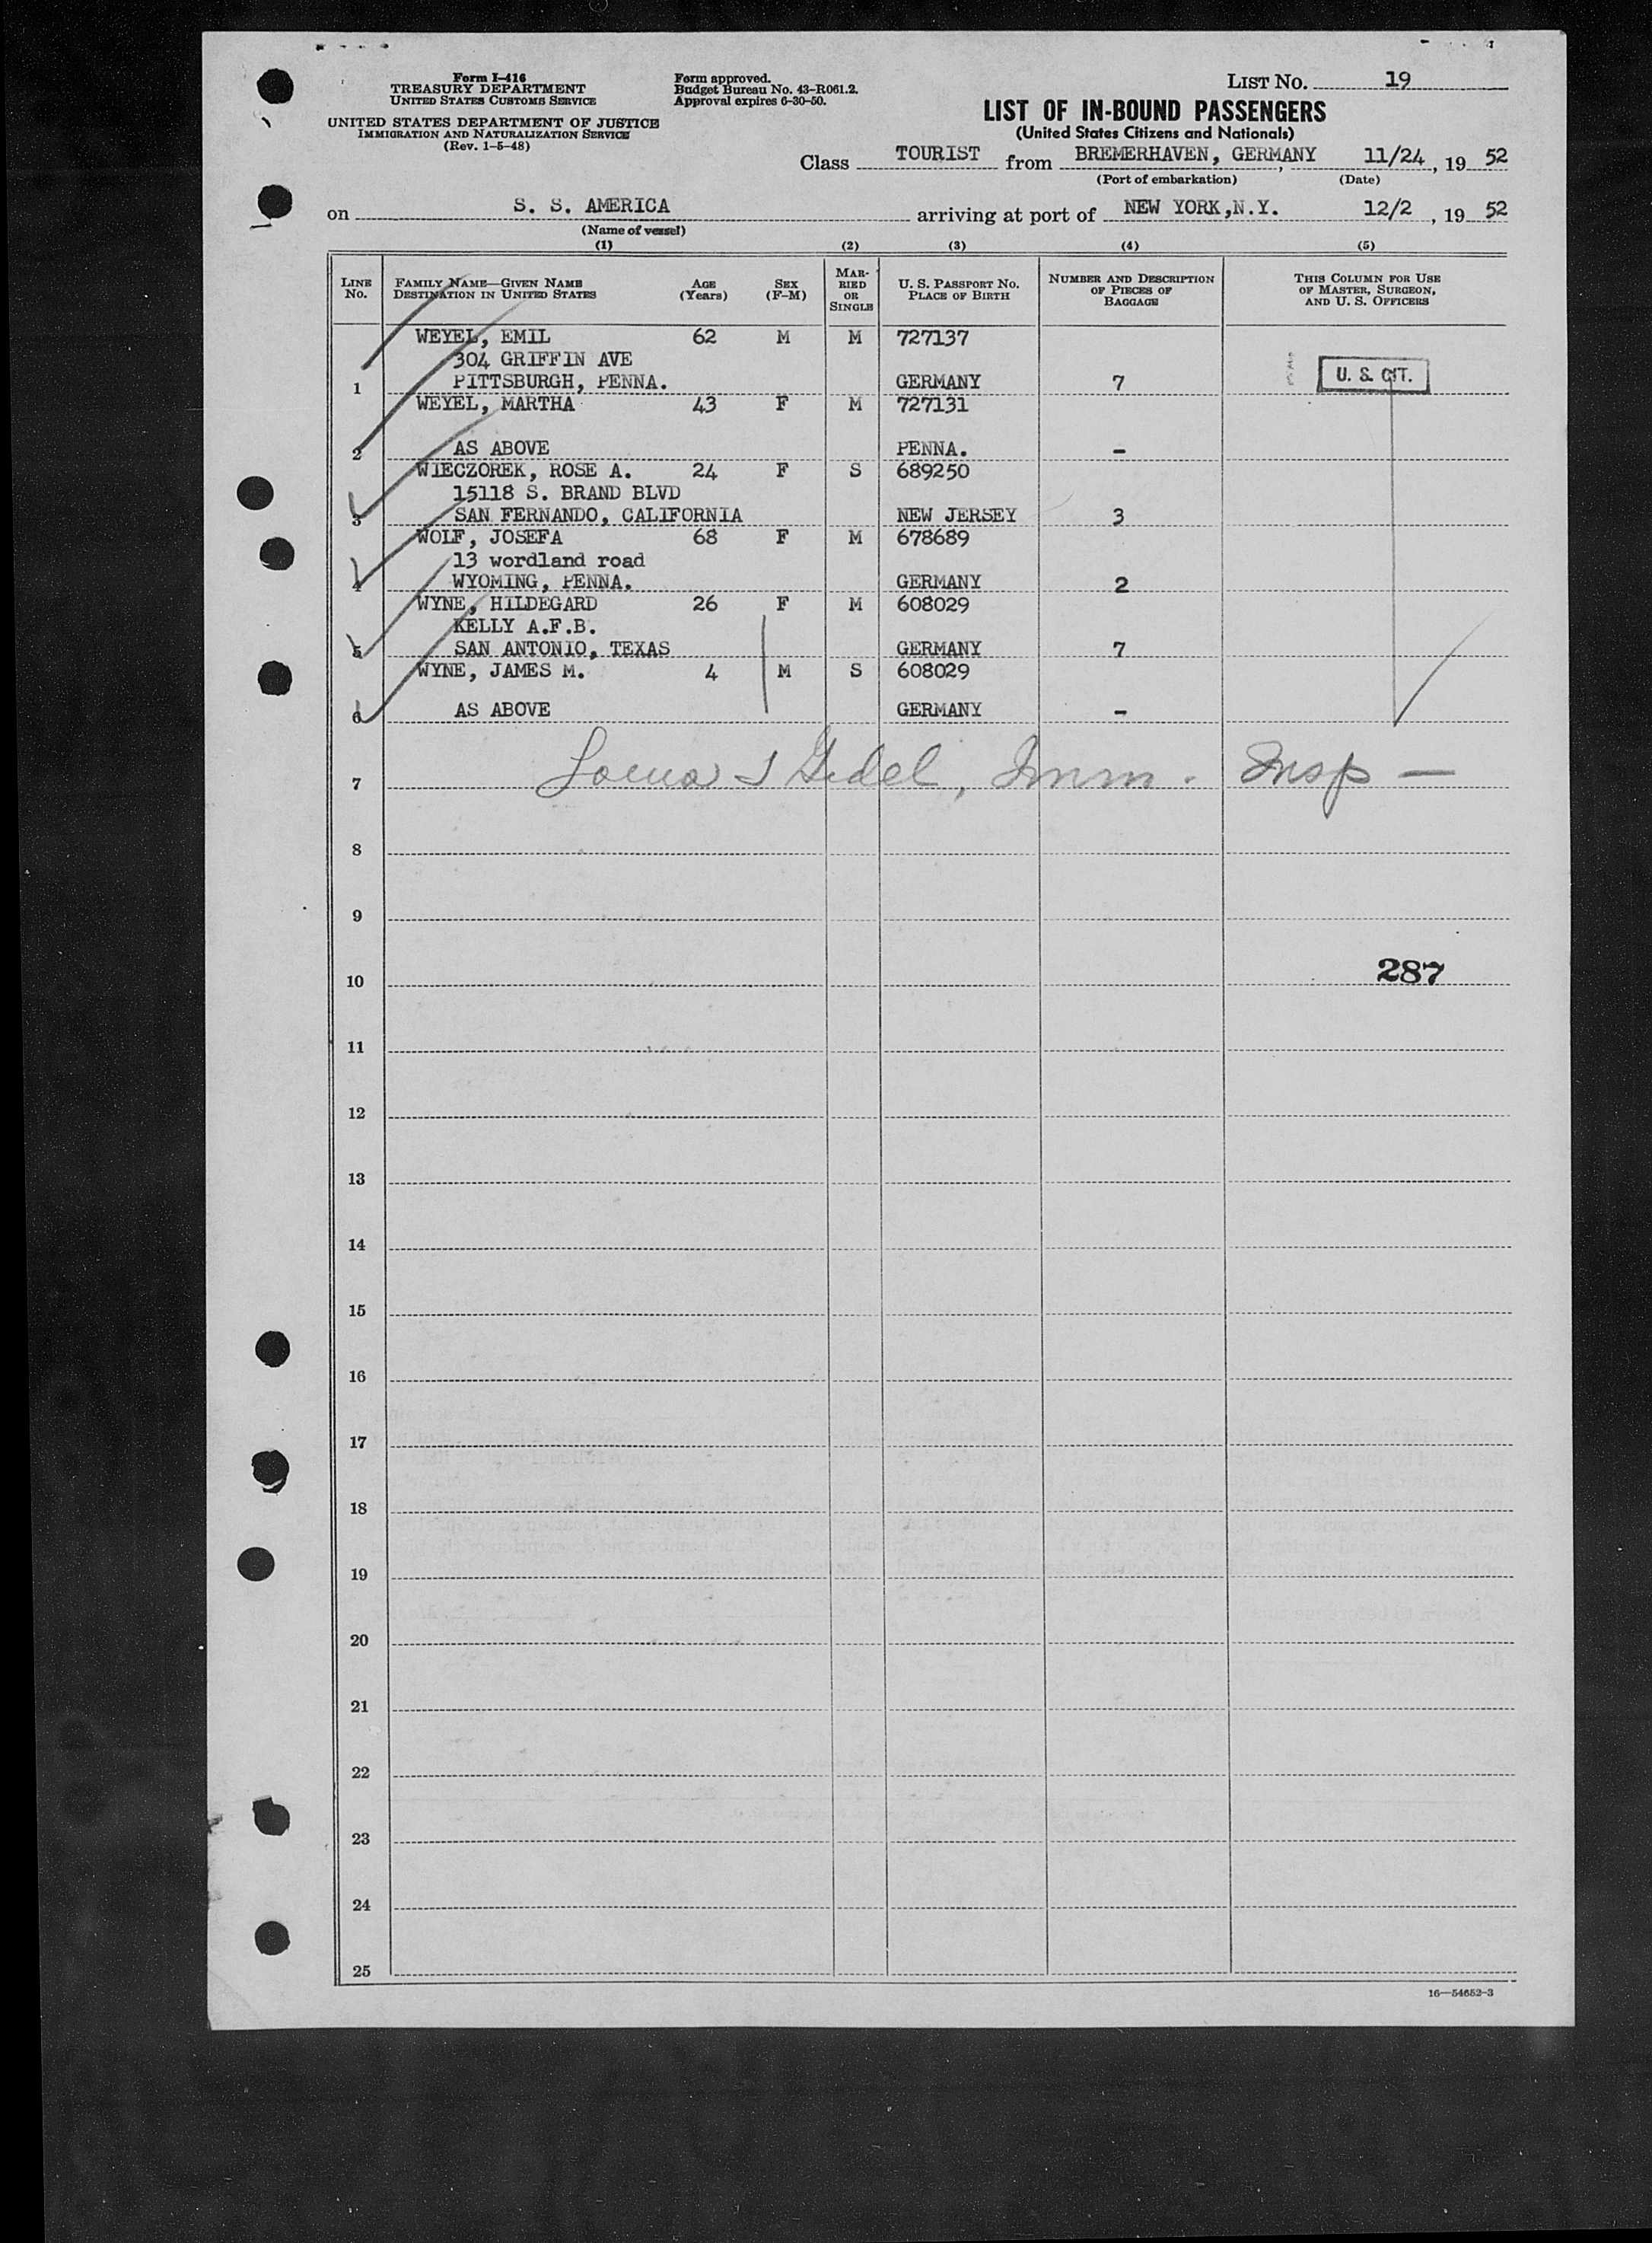 Form I-416
TREASURY DEPARTMENT
UNITED STATES CUSTOMS SERVICE
UNITED STATES DEPARTMENT OF JUSTICE
IMMIGRATION AND NATURALIZATION SERVICE
(Rev. 1-5-48)
Form approved.
Budget Bureau No. 43-R061.2.
Approval expires 6-30-50.
LIST NO. 19
LIST OF IN-BOUND PASSENGERS
(United States Citizens and Nationals)
Class TOURIST from BREMERHAVEN, GERMANY, 11/24, 19 52
(Port of embarkation) (Date)
on S. S. AMERICA arriving at port of NEW YORK,N.Y. 12/2, 19 52
(Name of vessel)
(1) (2) (3) (4) (5)
LINE NO. FAMILY NAME—GIVEN NAME DESTINATION IN UNITED STATES AGE (Years) SEX (F-M) MARRIED OR SINGLE U. S. PASSPORT NO. PLACE OF BIRTH NUMBER AND DESCRIPTION OF PIECES OF BAGGAGE THIS COLUMN FOR USE OF MASTER, SURGEON, AND U. S. OFFICERS
WEYEL, EMIL 62 M M 727137
304 GRIFFIN AVE
1 PITTSBURGH, PENNA. GERMANY 7 U. S. CIT.
WEYEL, MARTHA 43 F M 727131
2 AS ABOVE PENNA. -
WIECZOREK, ROSE A. 24 F S 689250
15118 S. BRAND BLVD
3 SAN FERNANDO, CALIFORNIA NEW JERSEY 3
WOLF, JOSEFA 68 F M 678689
13 wordland road
4 WYOMING, PENNA. GERMANY 2
WYNE, HILDEGARD 26 F M 608029
KELLY A.F.B.
5 SAN ANTONIO, TEXAS GERMANY 7
WYNE, JAMES M. 4 M S 608029
6 AS ABOVE GERMANY -
7 Imm. Insp —
8
9
10 287
11
12
13
14
15
16
17
18
19
20
21
22
23
24
25
16—54652-3